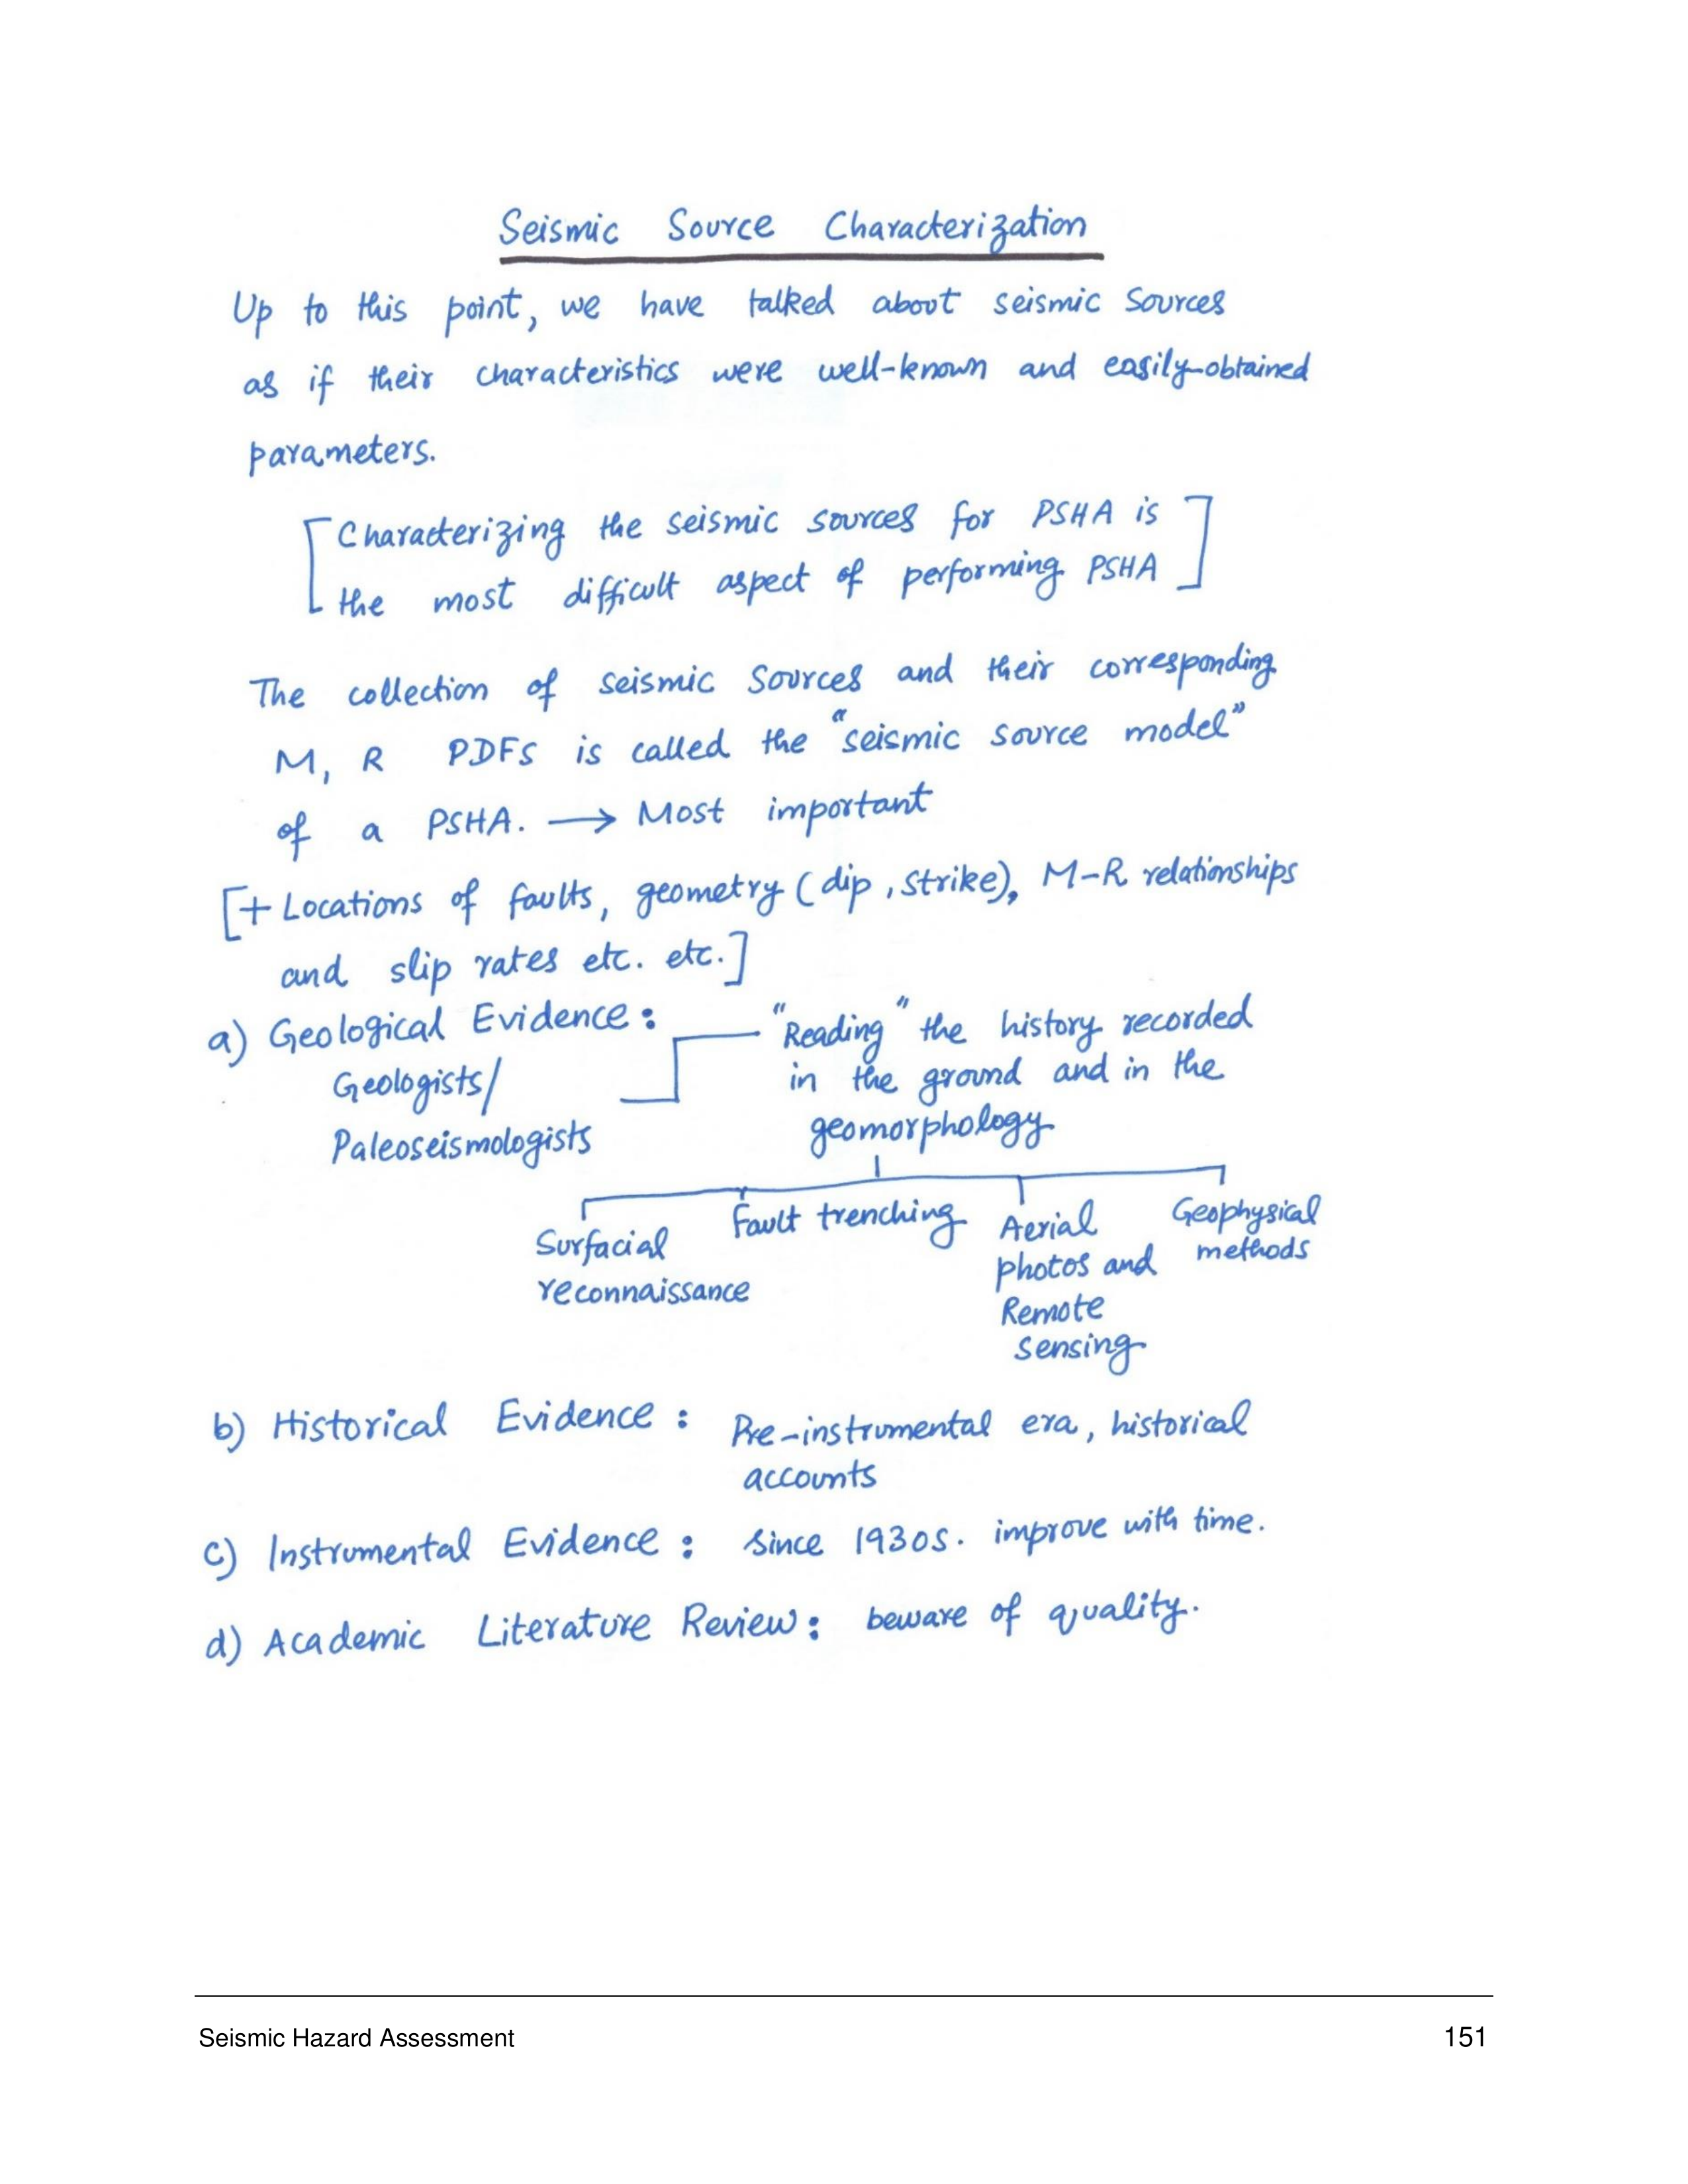 Seismic Source Characterization
Up to this point, we have talked about seismic sources
as if their characteristics were well-known and easily-obtained
parameters.
[Characterizing the seismic sources for PSHA is
the most difficult aspect of performing PSHA]
The collection of seismic sources and their corresponding
M, R PDFs is called the "seismic source model"
of a PSHA. → Most important
[+ Locations of faults, geometry (dip, strike), M-R relationships
and slip rates etc. etc.]
a) Geological Evidence:
Geologists/
Paleoseismologists
"Reading" the history recorded
in the ground and in the
geomorphology
Surfacial
reconnaissance
Fault trenching
Aerial
photos and
Remote
sensing
Geophysical
methods
b) Historical Evidence: Pre-instrumental era, historical
accounts
c) Instrumental Evidence: since 1930s. improve with time.
d) Academic Literature Review: beware of quality.
Seismic Hazard Assessment 151